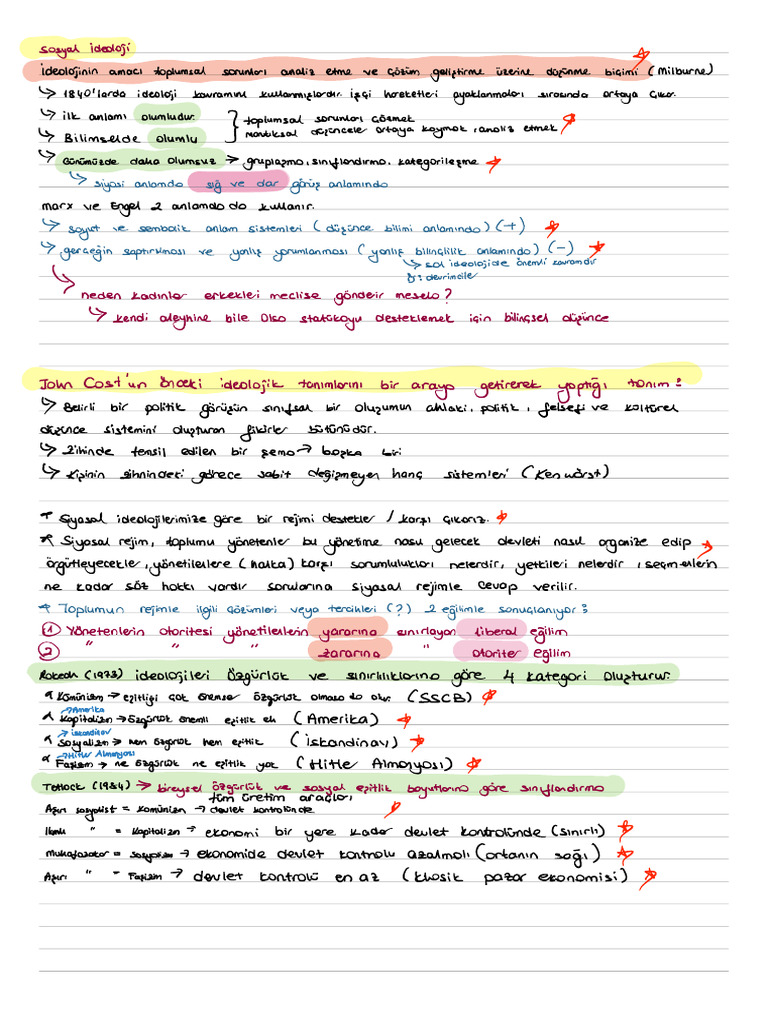 sosyal ideoloji
ideolojinin amacı toplumsal sorunları analiz etme ve çözüm geliştirme üzerine düşünme biçimi (Milburne)
↳ 1840'larda ideoloji kavramını kullanmışlardır. işçi hareketleri ayaklanmaları sırasında ortaya çıkar.
↳ ilk anlamı olumludur.
↳ Bilimselde olumlu
toplumsal sorunları çözmek
mantıksal düşünceler ortaya koymak, analiz etmek
↳ Günümüzde daha olumsuz → gruplaşma, sınıflandırma, kategorileşme
↳ siyasi anlamda sığ ve dar görüş anlamında
marx ve Engel 2 anlamda da kullanır.
↳ soyut ve sembolik anlam sistemleri (düşünce bilimi anlamında) (+)
↳ gerçeğin saptırılması ve yanlış yorumlanması (yanlış bilinçlilik anlamında) (-)
↳ sol ideolojide önemli kavramdır
ö: devrimciler
↳ neden kadınlar erkekleri meclise gönderir mesela?
↳ kendi aleyhine bile olsa statükoyu desteklemek için bilinçsel düşünce
John Cost'un önceki ideolojik tanımlarını bir araya getirerek yaptığı tanım:
↳ Belirli bir politik görüşün sınıfsal bir oluşumun ahlaki, politik, felsefi ve kültürel
düşünce sistemini oluşturan fikirler bütünüdür.
↳ Zihinde temsil edilen bir şema → başka biri
↳ Kişinin zihnindeki görece sabit değişmeyen inanç sistemleri (Kenwørst)
* Siyasal ideolojilerimize göre bir rejimi destekler / karşı çıkarız.
* Siyasal rejim, toplumu yönetenler bu yönetime nasıl gelecek devleti nasıl organize edip
örgütleyecekler, yönetilenlere (halka) karşı sorumlulukları nelerdir, yetkileri nelerdir, seçmenlerin
ne kadar söz hakkı vardır sorularına siyasal rejimle cevap verilir.
* Toplumun rejimle ilgili çözümleri veya tercihleri (?) 2 eğilimle sonuçlanıyor:
① Yönetenlerin otoritesi yönetilenlerin yararına sınırlayan liberal eğilim
② " " " zararına " otoriter eğilim
Rokeah (1973) ideolojileri özgürlük ve sınırlılıklarına göre 4 kategori oluşturur.
* Komünizm → eşitliği çok önemser özgürlük olmasa da olur. (SSCB)
→ Amerika
* Kapitalizm → özgürlük önemli eşitlik eh (Amerika)
→ iskandinav
* Sosyalizm → hem özgürlük hem eşitlik (İskandinav)
→ Hitler Almanyası
* Faşizm → ne özgürlük ne eşitlik yok (Hitler Almanyası)
Tetlock (1984) → bireysel özgürlük ve sosyal eşitlik boyutlarına göre sınıflandırma
tüm üretim araçları
Aşırı sosyalist = Komünizm → devlet kontrolünde
Ilımlı " = Kapitalizm → ekonomi bir yere kadar devlet kontrolünde (sınırlı)
Muhafazakar = sosyalizm → ekonomide devlet kontrolü azalmalı (ortanın sağı)
Aşırı " = Faşizm → devlet kontrolü en az (klasik pazar ekonomisi)